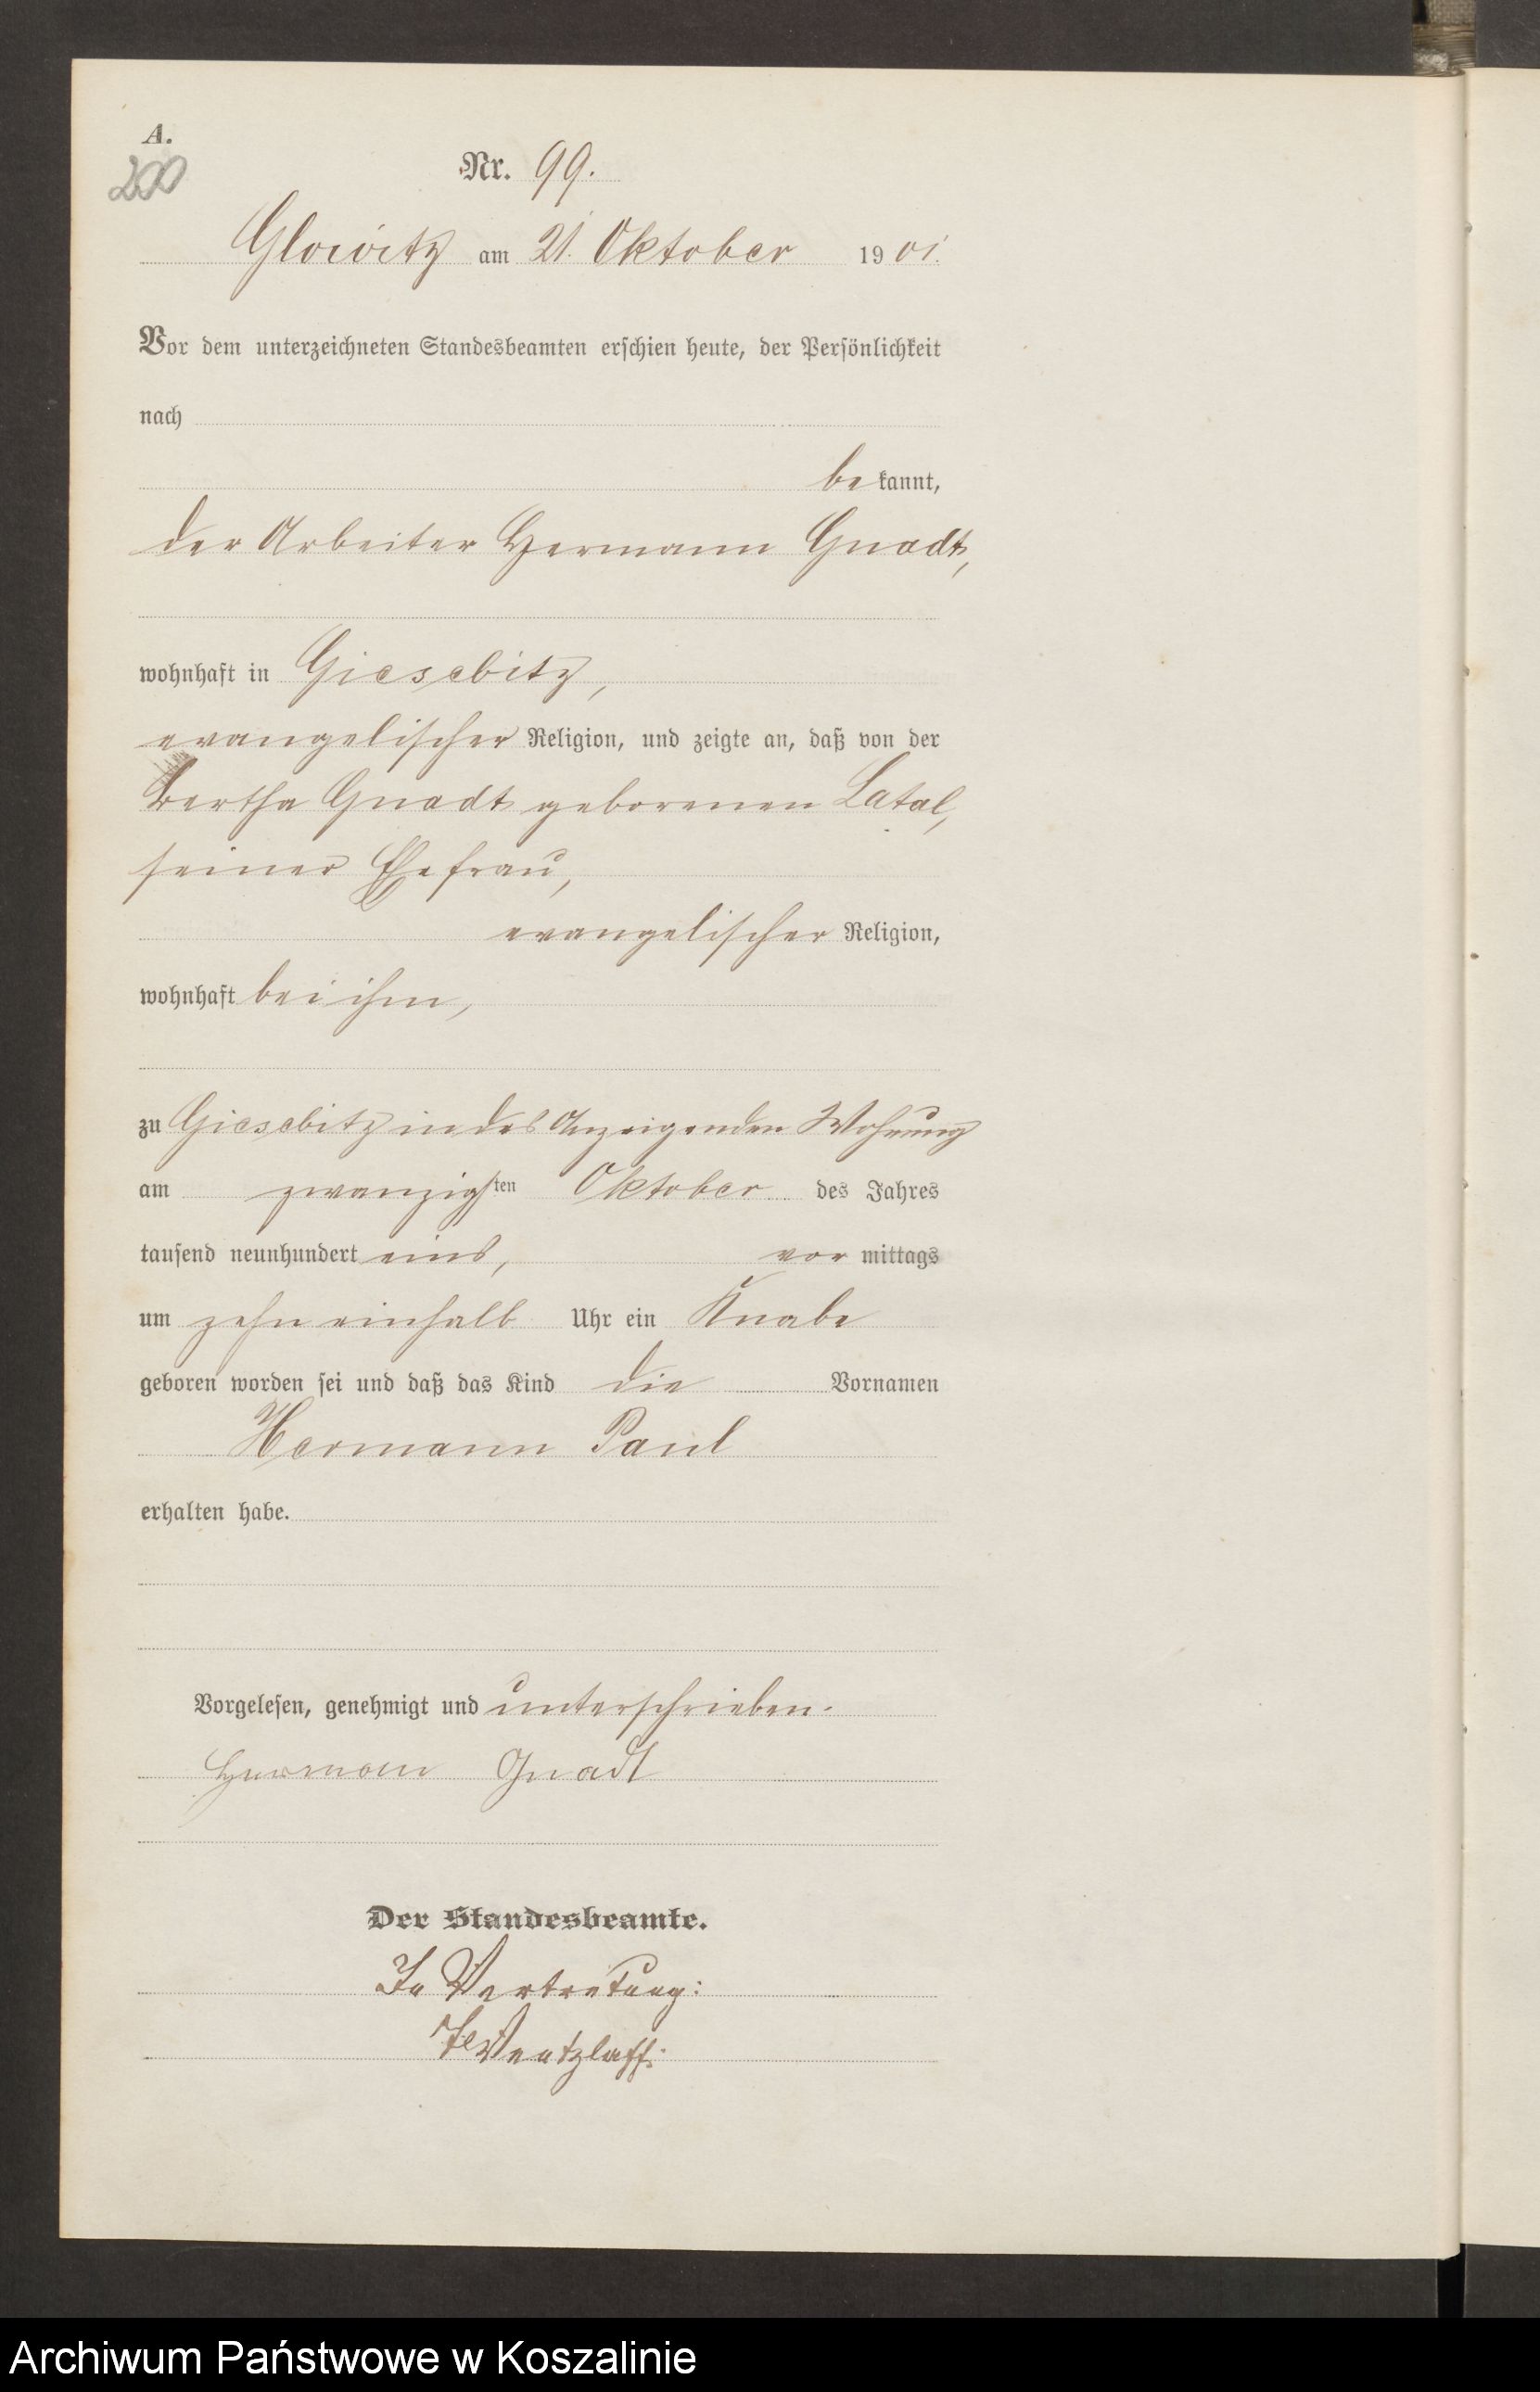 A.
200
Nr. 99.
Glowitz am 21. Oktober 1901.
Vor dem unterzeichneten Standesbeamten erschien heute, der Persönlichkeit
nach
bekannt,
der Arbeiter Hermann Gnadt,
wohnhaft in Giesebitz,
evangelischer Religion, und zeigte an, daß von der
Bertha Gnadt geborenen Latal,
seiner Ehefrau,
evangelischer Religion,
wohnhaft bei ihm,
zu Giesebitz in des Anzeigenden Wohnung
am zwanzigsten Oktober des Jahres
tausend neunhundert eins, vormittags
um zehn einhalb Uhr ein Knabe
geboren worden sei und daß das Kind die Vornamen
Hermann Paul
erhalten habe.
Vorgelesen, genehmigt und unterschrieben.
Hermann Gnadt
Der Standesbeamte.
In Vertretung:
Wentzlaff.
Archiwum Państwowe w Koszalinie